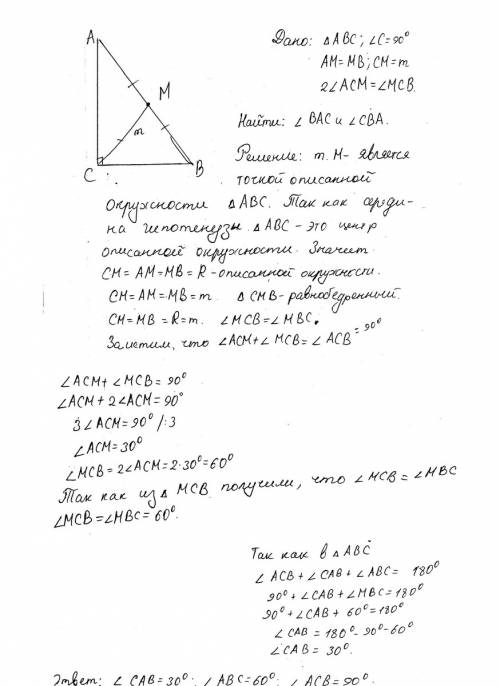 A
M
m
C
B
Дано: △ABC; ∠C=90°
AM=MB; CM=m
2∠ACM=∠MCB.
Найти: ∠BAC и ∠CBA.
Решение: т. M- является
точкой описанной
окружности △ABC. Так как середи-
на гипотенузы △ABC - это центр
описанной окружности. Значит
CM= AM=MB= R-описанной окружности.
CM=AM=MB=m. △CMB-равнобедренный.
CM=MB=R=m. ∠MCB=∠MBC.
Заметим, что ∠ACM+∠MCB=∠ACB=90°
∠ACM+∠MCB=90°
∠ACM+2∠ACM=90°
3∠ACM=90° /:3
∠ACM=30°
∠MCB=2∠ACM=2·30°=60°
Так как из △MCB получили, что ∠MCB=∠MBC
∠MCB=∠MBC=60°.
Так как в △ABC
∠ACB+∠CAB+∠ABC= 180°
90°+∠CAB+∠MBC=180°
90°+∠CAB+ 60°=180°
∠CAB=180°-90°-60°
∠CAB=30°.
Ответ: ∠CAB=30°; ∠ABC=60°; ∠ACB=90°.